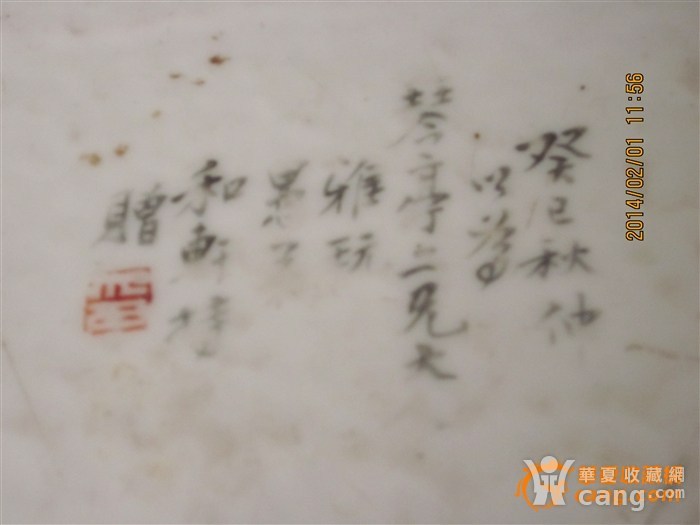 癸巳秋仲
以爲
琴亭二兄大
雅玩
愚弟
和
贈
2014/02/01 11:56
華夏收藏網
cang.com